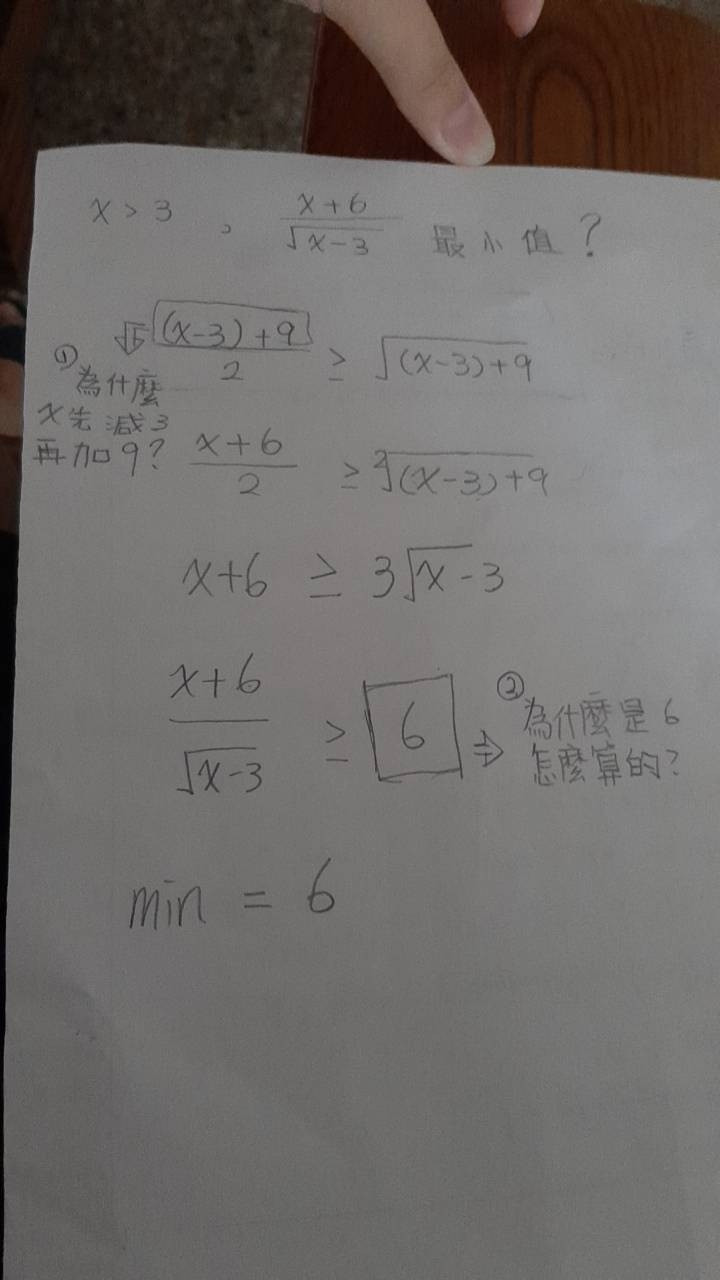 x > 3 , (x+6)/√(x-3) 最小值?
((x-3)+9)/2 ≥ √((x-3)+9)
① 為什麼
x先減3
再加9?
(x+6)/2 ≥ ²√((x-3)+9)
x+6 ≥ 3√x-3
(x+6)/√(x-3) ≥ 6 ⇒ ② 為什麼是6
怎麼算的?
min = 6